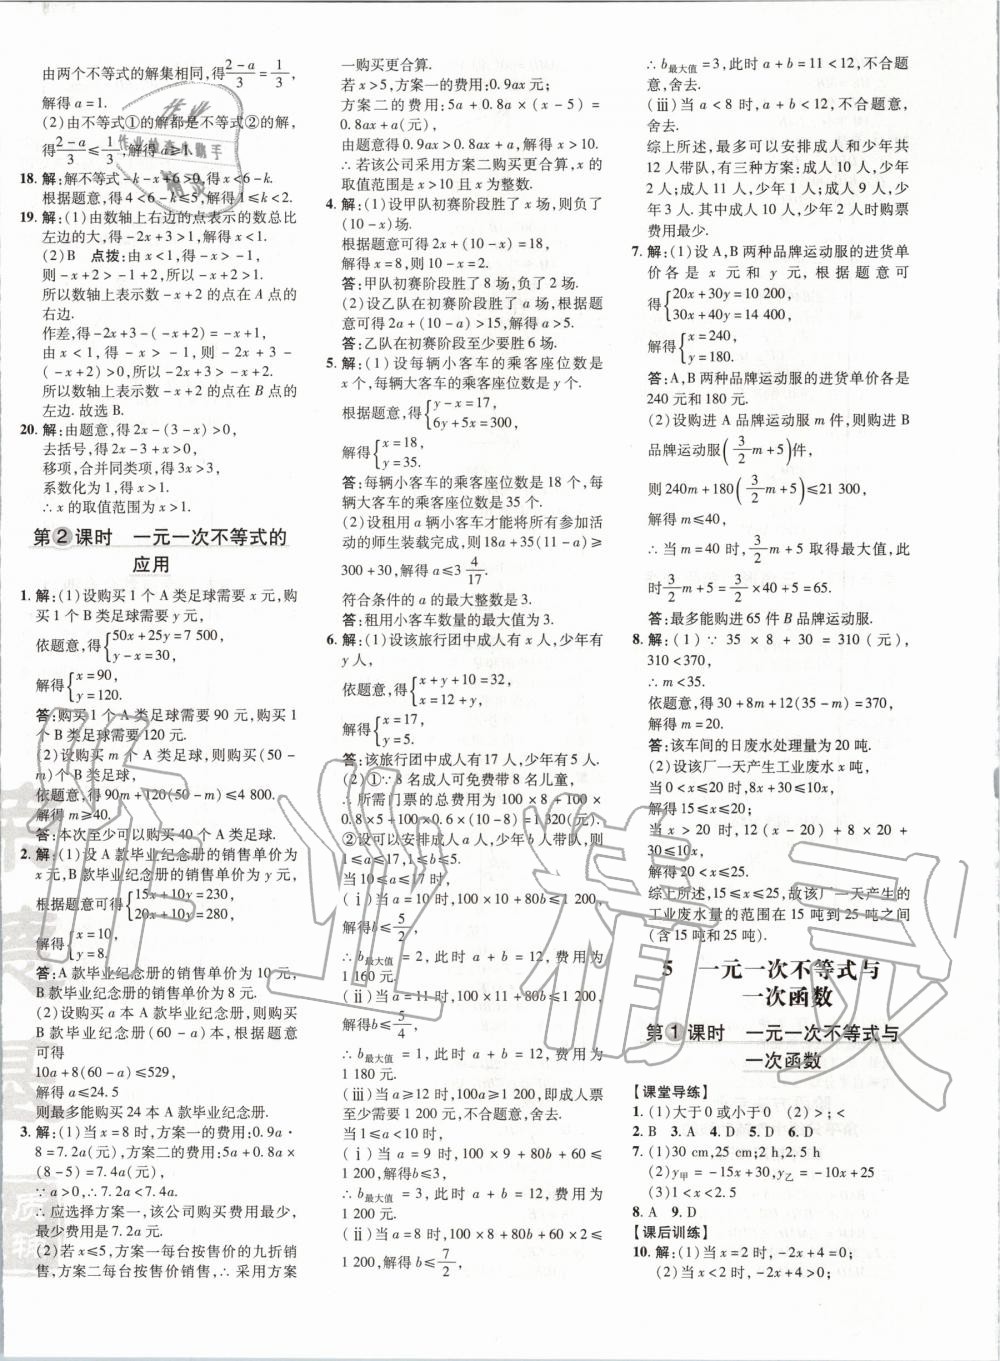 由两个不等式的解集相同,得(2-a)/3=1/3,
解得 a=1.
(2)由不等式①的解都是不等式②的解,
得(2-a)/3≤1/3,解得 a≥1.
18. 解:解不等式-k-x+6>0,得 x<6-k.
根据题意,得 4<6-k≤5,解得 1≤k<2.
19. 解:(1)由数轴上右边的点表示的数总比
左边的大,得-2x+3>1,解得 x<1.
(2)B 点拨:由 x<1,得-x>-1,
则-x+2>-1+2,所以-x+2>1.
所以数轴上表示数-x+2 的点在 A 点的
右边.
作差,得-2x+3-(-x+2)=-x+1,
由 x<1,得 -x>-1,则 -2x+3-
(-x+2)>0,所以-2x+3>-x+2.
所以数轴上表示数-x+2 的点在 B 点的
左边. 故选 B.
20. 解:由题意,得 2x-(3-x)>0,
去括号,得 2x-3+x>0,
移项,合并同类项,得 3x>3,
系数化为 1,得 x>1.
∴x 的取值范围为 x>1.
第2课时 一元一次不等式的
应用
1. 解:(1)设购买 1 个 A 类足球需要 x 元,购
买 1 个 B 类足球需要 y 元,
依题意,得{50x+25y=7 500,
y-x=30,
解得{x=90,
y=120.
答:购买 1 个 A 类足球需要 90 元,购买 1
个 B 类足球需要 120 元.
(2)设购买 m 个 A 类足球,则购买(50-
m)个 B 类足球,
依题意,得 90m+120(50-m)≤4 800.
解得 m≥40.
答:本次至少可以购买 40 个 A 类足球.
2. 解:(1)设 A 款毕业纪念册的销售单价为
x 元,B 款毕业纪念册的销售单价为 y 元,
根据题意可得{15x+10y=230,
20x+10y=280,
解得{x=10,
y=8.
答:A 款毕业纪念册的销售单价为 10 元,B
款毕业纪念册的销售单价为 8 元.
(2)设购买 a 本 A 款毕业纪念册,则购买
B 款毕业纪念册(60-a)本,根据题意
可得
10a+8(60-a)≤529,
解得 a≤24.5
则最多能够购买 24 本 A 款毕业纪念册.
3. 解:(1)当 x=8 时,方案一的费用:0.9a·
8=7.2a(元),方案二的费用:5a+0.8a×
(8-5)=7.4a(元),
∵a>0,∴7.2a<7.4a.
∴应选择方案一,该公司购买费用最少,
最少费用是 7.2a 元.
(2)若 x≤5,方案一每台按售价的九折销
售,方案二每台按售价销售,∴采用方案
一购买更合算.
若 x>5,方案一的费用:0.9ax 元;
方案二的费用:5a+0.8a×(x-5)=
0.8ax+a(元),
由题意得 0.9ax>0.8ax+a,解得 x>10.
∴若该公司采用方案二购买更合算,x 的
取值范围是 x>10 且 x 为整数.
4. 解:(1)设甲队初赛阶段胜了 x 场,则负了
(10-x)场.
根据题意可得 2x+(10-x)=18,
解得 x=8.
答:甲队初赛阶段胜了 8 场,负了 2 场.
(2)设乙队在初赛阶段胜了 a 场,根据题
意可得 2a+(10-a)>15,解得 a>5.
答:乙队在初赛阶段至少要胜 6 场.
5. 解:(1)设每辆小客车的乘客座位数是
x 个,每辆大客车的乘客座位数是 y 个.
根据题意,得{y-x=17,
6y+5x=300,
解得{x=18,
y=35.
答:每辆小客车的乘客座位数是 18 个,每
辆大客车的乘客座位数是 35 个.
(2)设租用 a 辆小客车才能将所有参加活
动的师生装载完成,则 18a+35(11-a)≥
300+30,解得 a≤3 4/17.
符合条件的 a 的最大整数是 3.
答:租用小客车数量的最大值为 3.
6. 解:(1)设该旅行团中成人有 x 人,少年有
y 人,
依题意,得{x+y+10=32,
x=12+y,
解得{x=17,
y=5.
答:该旅行团中成人有 17 人,少年有 5 人.
(2)①∵8 名成人可免费带 8 名儿童,
∴所需门票的总费用为 100×8+100×
0.8×5+100×0.6×(10-8)=1 320(元).
②设可以安排成人 a 人,少年 b 人带队,则
1≤a≤17,1≤b≤5.
当 10≤a≤17 时,
(ⅰ)当 a=10 时,100×10+80b≤1 200,
解得 b≤5/2,
∴b最大值=2,此时 a+b=12,费用为
1 160 元.
(ⅱ)当 a=11 时,100×11+80b≤1 200,
解得 b≤5/4,
∴b最大值=1,此时 a+b=12,费用为
1 180 元.
(ⅲ)当 a≥12 时,100a≥1 200,即成人票至
少需要 1 200 元,不合题意,舍去.
当 1≤a<10 时,
(ⅰ)当 a=9 时,100×9+80b+60≤
1 200,解得 b≤3,
∴b最大值=3,此时 a+b=12,费用为
1 200 元.
(ⅱ)当 a=8 时,100×8+80b+60×2≤
1 200,解得 b≤7/2,
∴b最大值=3,此时 a+b=11<12,不合题
意,舍去.
(ⅲ)当 a<8 时,a+b<12,不合题意,
舍去.
综上所述,最多可以安排成人和少年共
12 人带队,有三种方案:成人 10 人,少年
2 人;成人 11 人,少年 1 人;成人 9 人,少年
3 人. 其中成人 10 人,少年 2 人时购票
费用最少.
7. 解:(1)设 A,B 两种品牌运动服的进货单
价各是 x 元和 y 元,根据题意可
得{20x+30y=10 200,
30x+40y=14 400,
解得{x=240,
y=180.
答:A,B 两种品牌运动服的进货单价各是
240 元和 180 元.
(2)设购进 A 品牌运动服 m 件,则购进 B
品牌运动服(3/2m+5)件,
则 240m+180(3/2m+5)≤21 300,
解得 m≤40.
∴当 m=40 时,3/2m+5 取得最大值,此
时3/2m+5=3/2×40+5=65.
答:最多能购进 65 件 B 品牌运动服.
8. 解:(1)∵35×8+30=310(元),
310<370,
∴m<35.
依题意,得 30+8m+12(35-m)=370,
解得 m=20.
答:该车间的日废水处理量为 20 吨.
(2)设该厂一天产生工业废水 x 吨,
当 0<x≤20 时,8x+30≤10x,
解得 15≤x≤20;
当 x>20 时,12(x-20)+8×20+
30≤10x,
解得 20<x≤25.
综上所述,15≤x≤25,故该厂一天产生的
工业废水量的范围在 15 吨到 25 吨之间
(含 15 吨和 25 吨).
5 一元一次不等式与
一次函数
第1课时 一元一次不等式与
一次函数
【课堂导练】
1. (1)大于 0 或小于 0 (2)>;<
2. B 3. A 4. D 5. D 6. D
7. (1)30 cm,25 cm;2 h,2.5 h
(2)y甲=-15x+30,y乙=-10x+25
(3)1<x<2.5
8. A 9. D
【课后训练】
10. 解:(1)当 x=2 时,-2x+4=0;
(2)当 x<2 时,-2x+4>0;
作业精灵